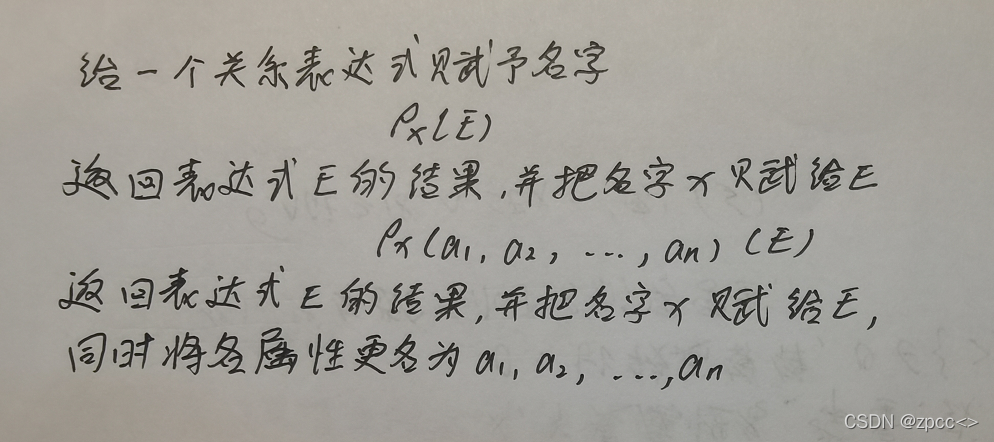 给一个关系表达式赋予名字
ρx(E)
返回表达式E的结果,并把名字x赋给E
ρx(a1, a2, ..., an)(E)
返回表达式E的结果,并把名字x赋给E,
同时将各属性更名为a1, a2, ..., an
CSDN @zpcc<>